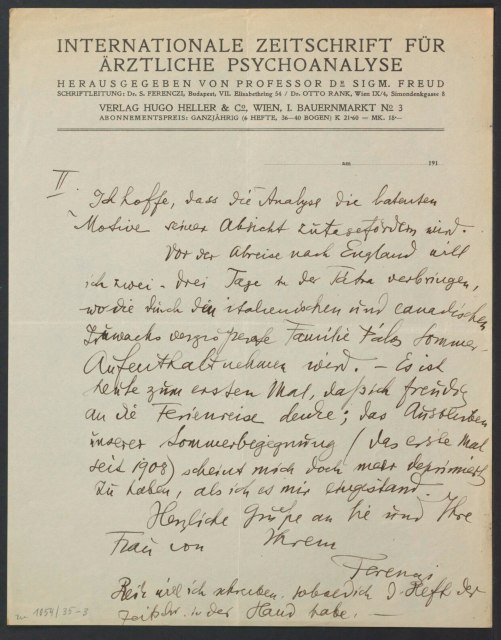 INTERNATIONALE ZEITSCHRIFT FÜR
ÄRZTLICHE PSYCHOANALYSE
HERAUSGEGEBEN VON PROFESSOR DR SIGM. FREUD
SCHRIFTLEITUNG: Dr. S. FERENCZI, Budapest, VII. Elisabethring 54 / Dr. OTTO RANK, Wien IX/4, Simondenkgasse 8
VERLAG HUGO HELLER & Co, WIEN, I. BAUERNMARKT No 3
ABONNEMENTSPREIS: GANZJÄHRIG (6 HEFTE, 36—40 BOGEN) K 21·60 = MK. 18·—
am 191
II.
Ich hoffe, dass die Analyse die latenten
Motive seiner Absicht zutagefördern wird.
Vor der Abreise nach England will
ich zwei - drei Tage in der Tátra verbringen,
wo die durch den italienischen und canadischen
Zuwachs vergrößerte Familie Pálos Sommer-
Aufenthalt nehmen wird. — Es ist
heute zum ersten Mal, daß ich freudig
an die Ferienreise denke; das Ausbleiben
unserer Sommerbegegnung (das erste Mal
seit 1908) scheint mich doch mehr deprimiert
zu haben, als ich es mir eingestand.
Herzliche Grüße an Sie und Ihre
Frau von Ihrem
Ferenczi
will ich schreiben, sobald ich d. Heft der
Zeitschr. in der Hand habe. —
1054/35-3